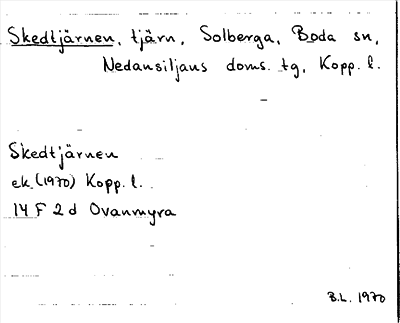 Skedtjärnen, tjärn, Solberga, Boda sn,
Nedansiljans doms. tg, Kopp. l.
Skedtjärnen
ek. (1970) Kopp. l.
14 F 2 d Ovanmyra
B.L. 1970